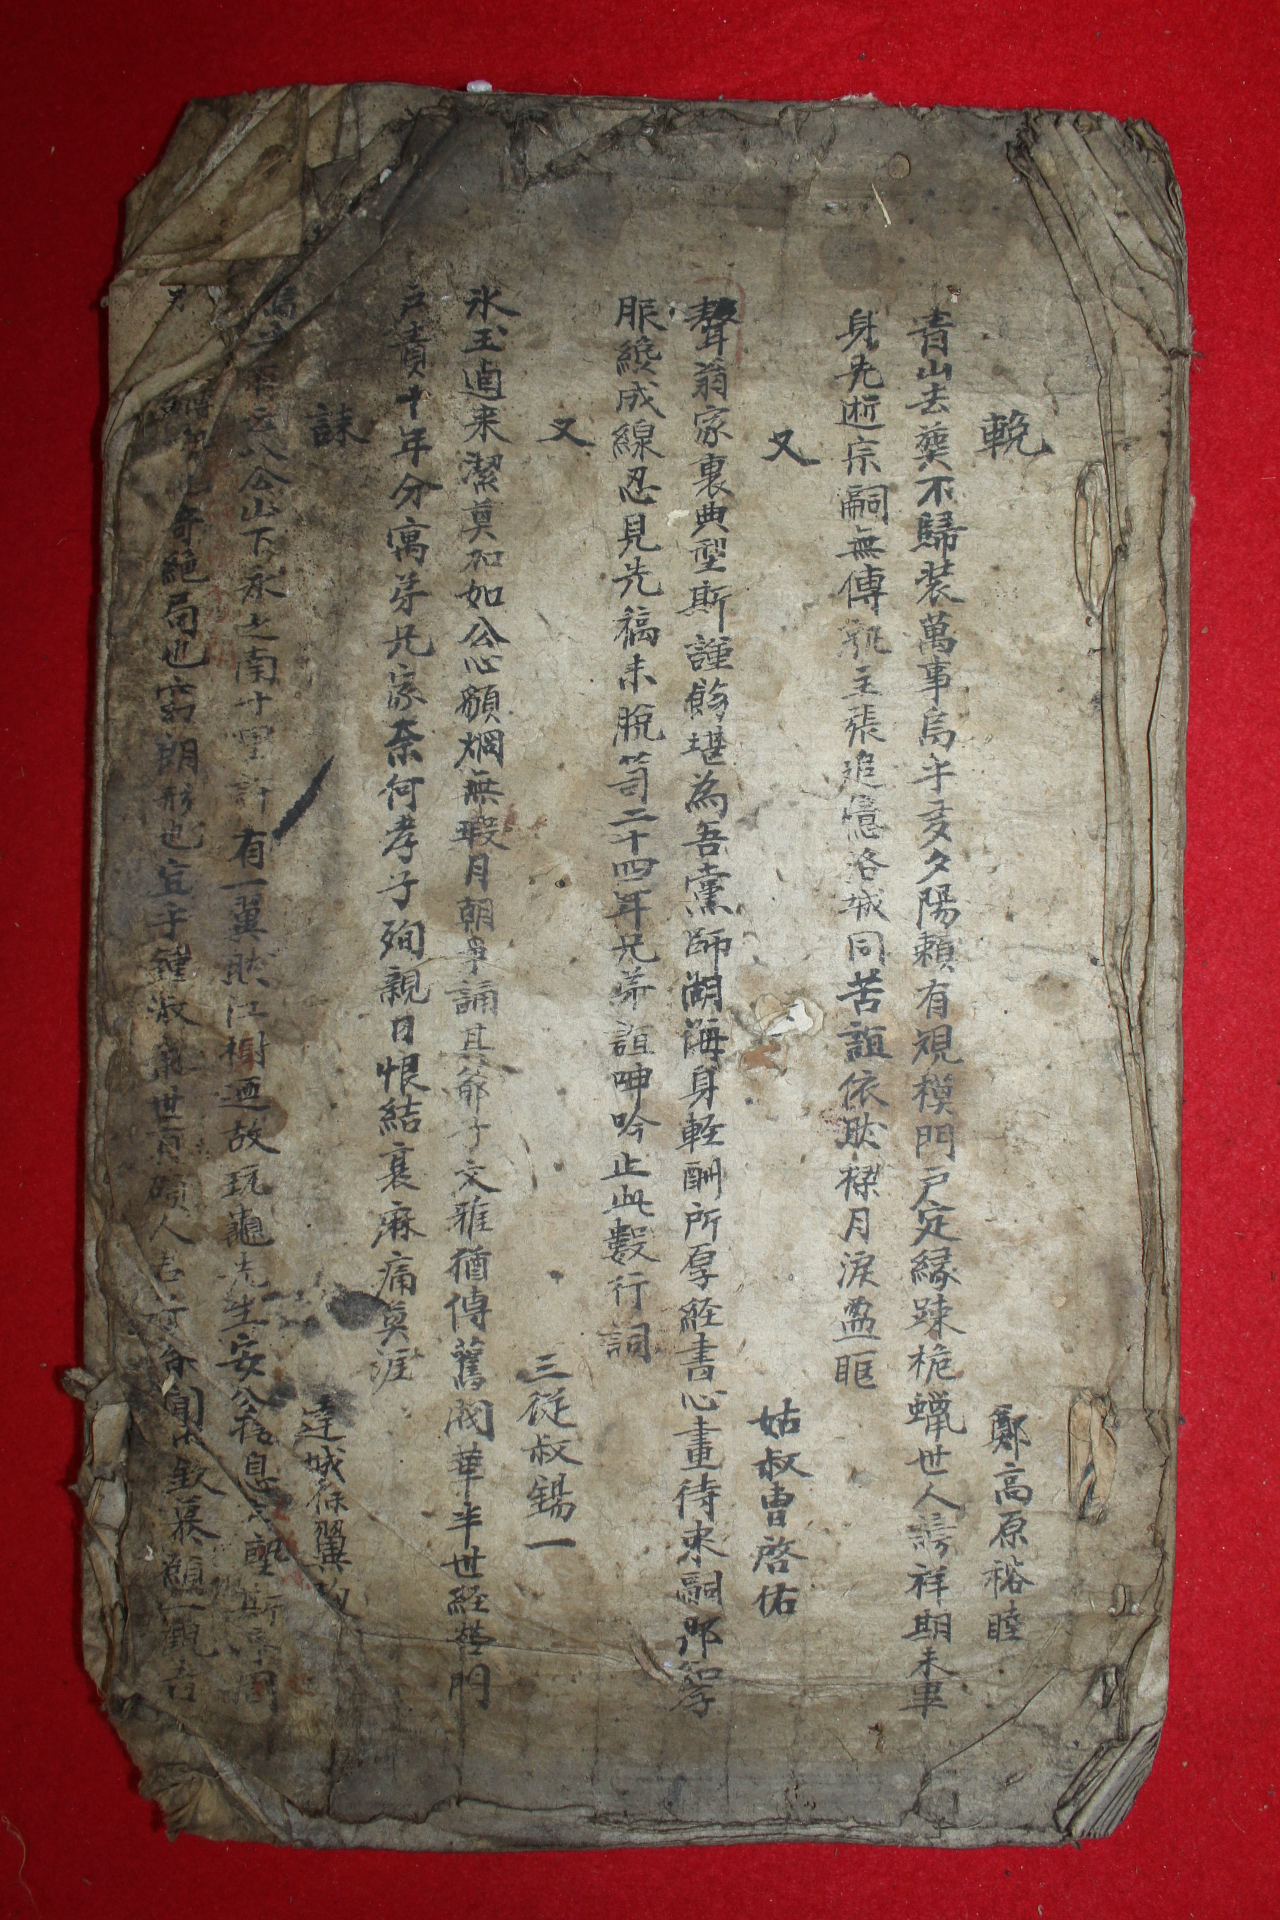 輓 鄭高原裕睦
靑山去葬不歸装萬事烏乎多夕陽賴有規模門戶定緣踈梔蠟世人譸祥期未畢
身先逝宗嗣無傳孰主張追憶洛城同苦誼依然樑月淚盈眶
又 姑叔曺啓佑
聱翁家裏典型斯謹飭堪為吾黨師湖海身輕酬所厚経書心畫待來嗣那知孝
服纔成線忍見先稿未脫笥二十四年兄弟誼呻吟止此數行詞
又 三從叔錫一
氷玉適来潔莫加如公心額烱無瑕月朝爭誦其爺子文雅猶傳舊閥華半世経營門
戶責十年分寓芽兄家奈何孝子殉親日恨結衰麻痛莫涯
誄 達城徐翼
八公山下永之南十里許有一翼然江榭迺故玩龜先生安公棲息
奇絶局也寬朗形也宜乎鍾淑 世 碩人 聞欽慕願一觀